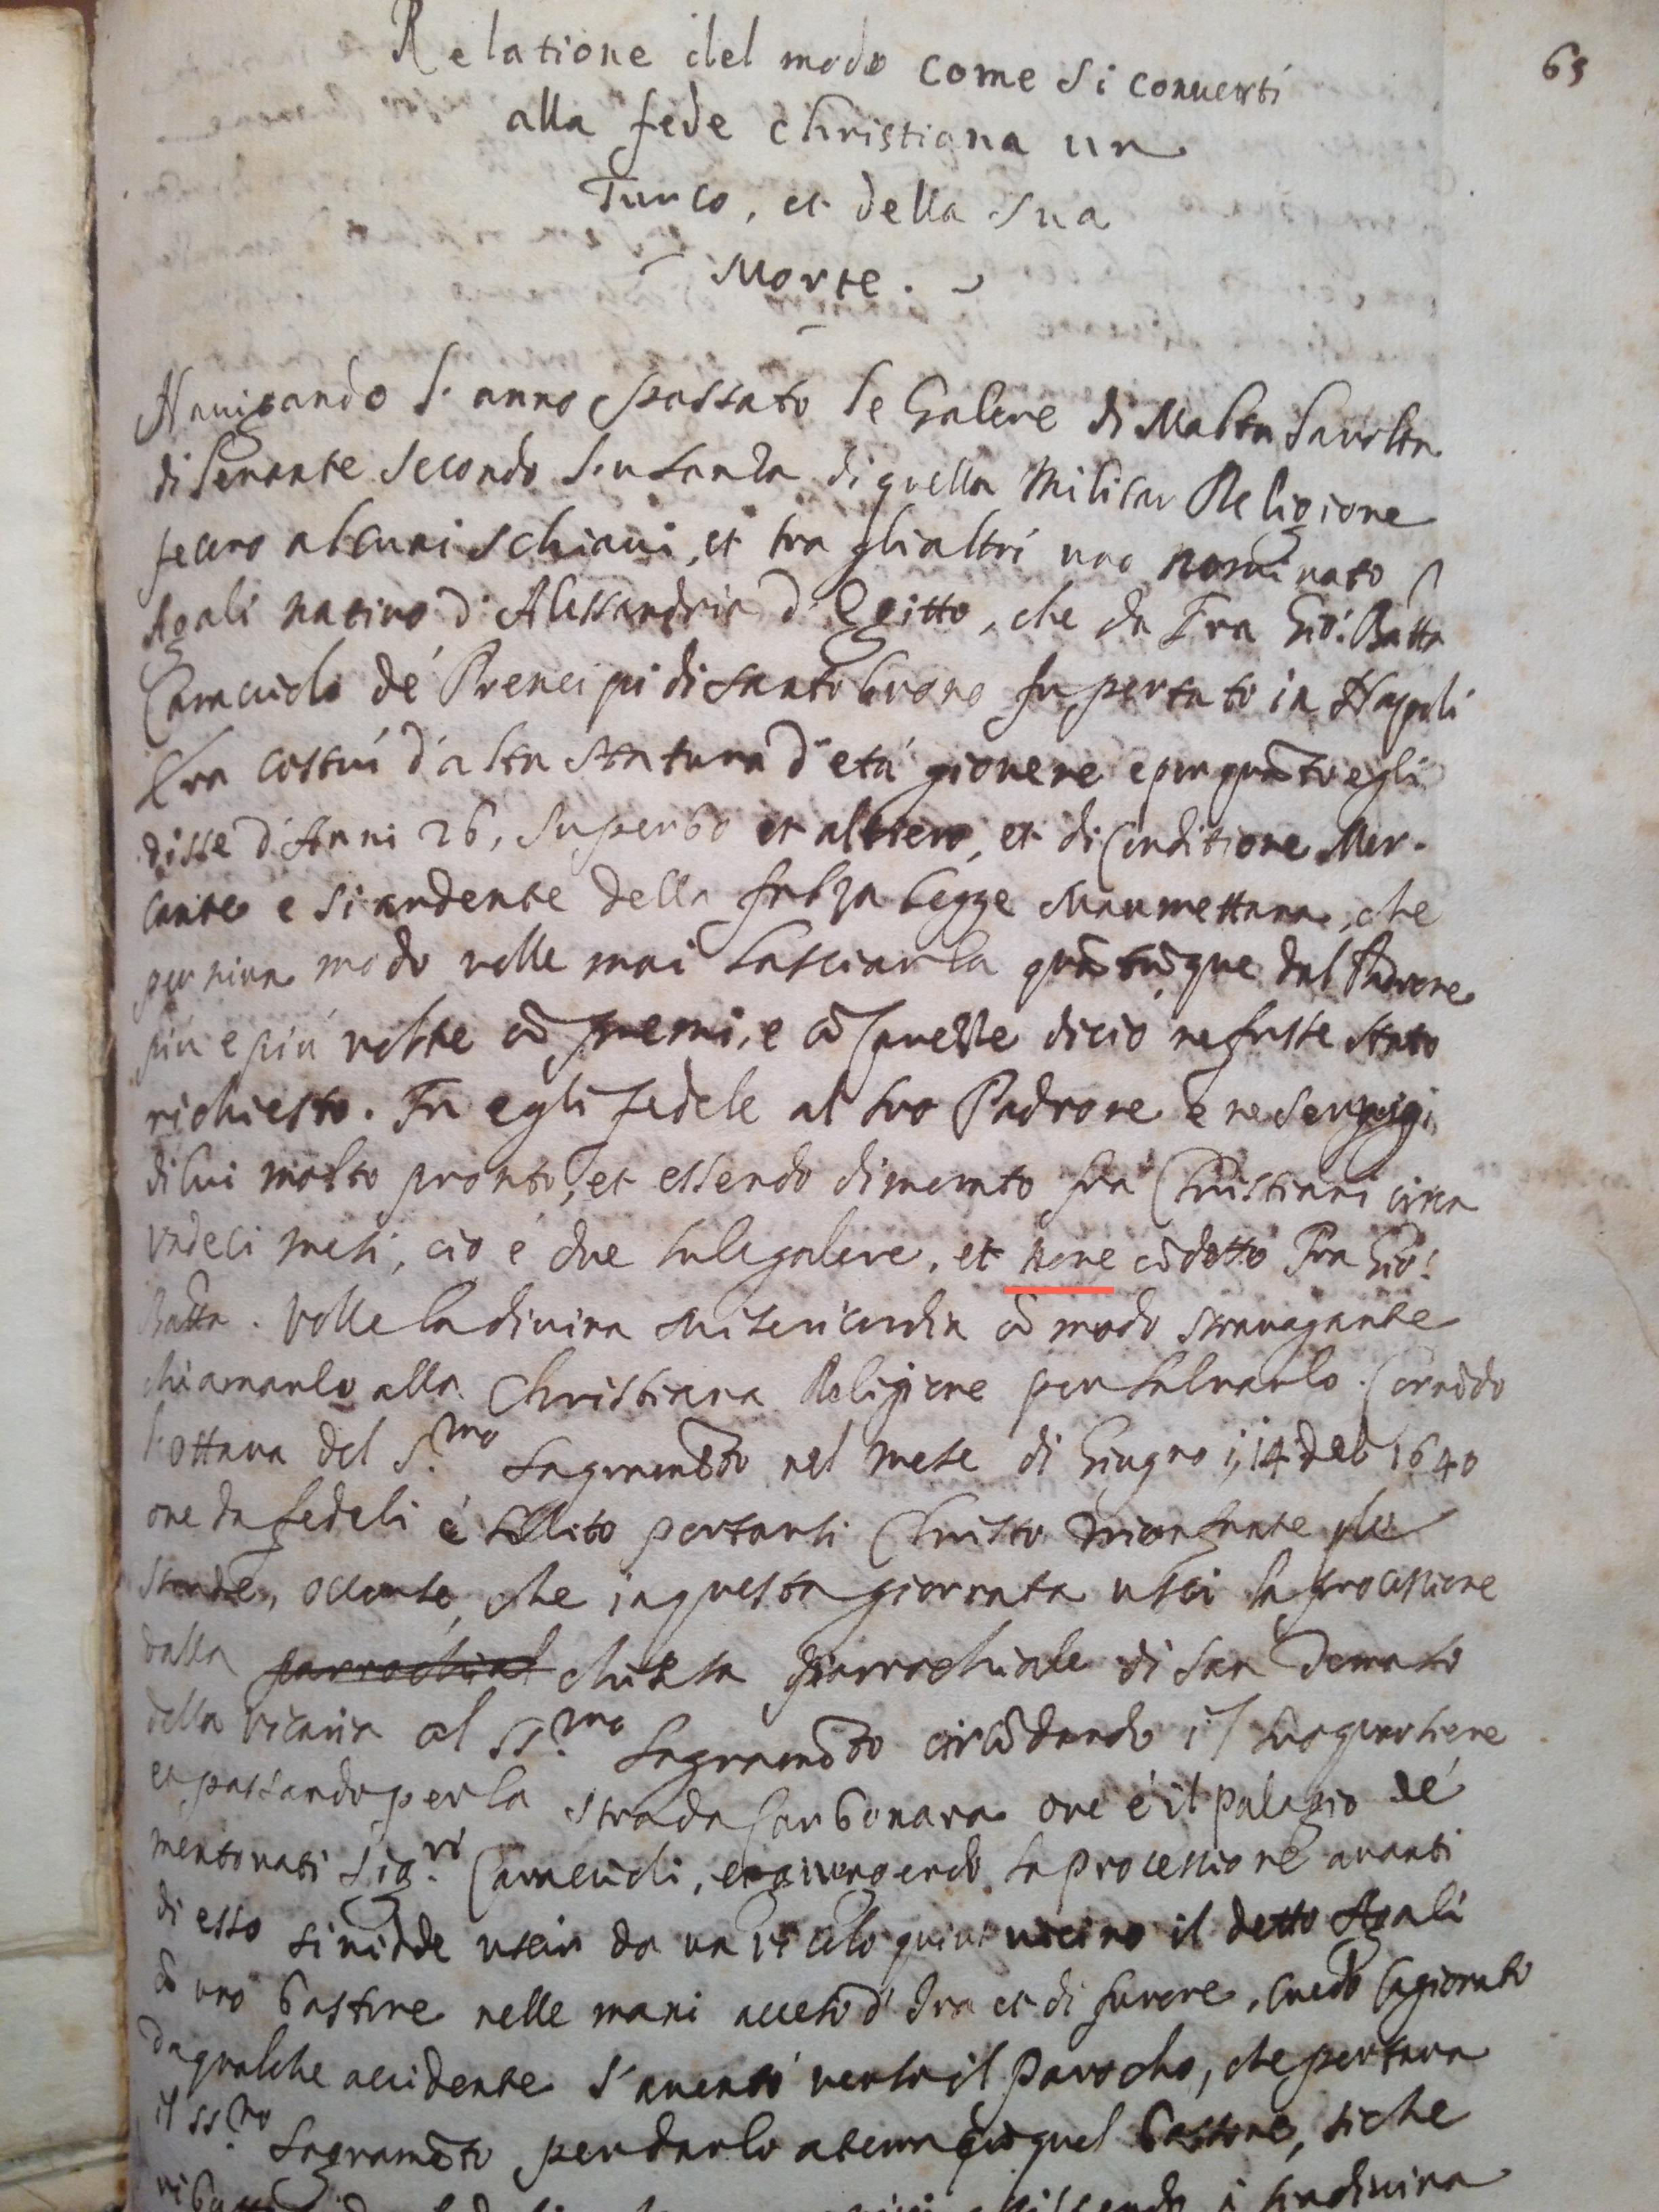 65
Relatione del modo come si conuertì
alla fede christiana un
Turco, et della sua
Morte.
Nauigando l'anno passato le Galere di Malta la uolta
di leuante secondo l'usanza di quella Militar Religione
fecero alcuni schiaui, et tra gli altri uno nominato
Agali natiuo d'Alessandria d'Egitto, che da Fra Gio: Batta
Caracciolo de' Prencipi di Santobuono fu portato in Napoli
Era costui d'alta statura d'età giouene e per quãto egli
disse d'Anni 26, superbo et altiero, et di Conditione Mer-
cante e si ardente della falza legge Maumettana, che
per niun modo uolle mai lasciarla quãtũque dal Padrone
più e più uolte cõ premi, e cõ carezze di ciò ne fusse stato
richiesto. Fu egli fedele al suo Padrone e ne seruigi
di lui molto pronto, et essendo dimorato fra Christiani circa
undeci mesi, cio è due sule galere, et noue cõ detto Fra Gio:
Batta. Volle la diuina Misericordia cõ modo strauagante
chiamarlo alla Christiana Religione per saluarlo. Corrẽdo
l'ottaua del S.mo Sagramẽto nel mese di Giugno 14 del 1640
oue da fedeli è solito portarsi Christo trionfante ple
strade, occorse, che in questa giornata uscì la processione
dalla parrochial chiesa parrochiale di San Tomaso
della Vicaria col SS.mo Sagramẽto circõdando il suo quartiere
et passando per la strada Carbonara oue è il palagio de'
mentouati Sig.ri Caraccioli, et giungendo la processione auanti
di esso si uidde uscir da un uicolo quiui uicino il detto Agali
cõ uno bastone nelle mani acceso d'Ira et di furore, cagionato
da qualche accidente s'auentò uerso il Parocho, che portaua
il SS.mo Sagramẽto per darlo a terra cõ quel bastone, si che
la diuina